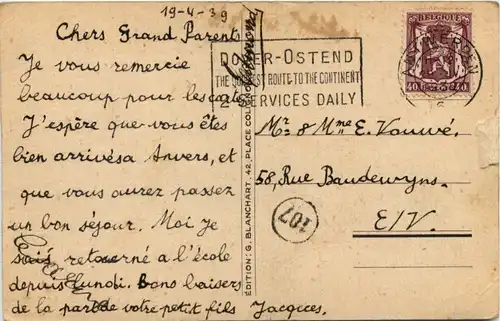 19-4-39
Chers Grand Parents
Je vous remercie
beaucoup pour les cartes
J'espère que vous êtes
bien arrivésa Anvers, et
que vous aurez passez
un bon séjour. Moi je
suis retourné a l'école
depuis lundi. Bons baisers
de la part de votre petit fils Jacques.
DOVER-OSTEND
THE SHORTEST ROUTE TO THE CONTINENT
SERVICES DAILY
BELGIQUE
40 40
ANTWERPEN
6
ÉDITION: G. BLANCHART. 42, PLACE
Mr & Mme E. Vouvé.
58, Rue Baudewyns.
E/V.
107